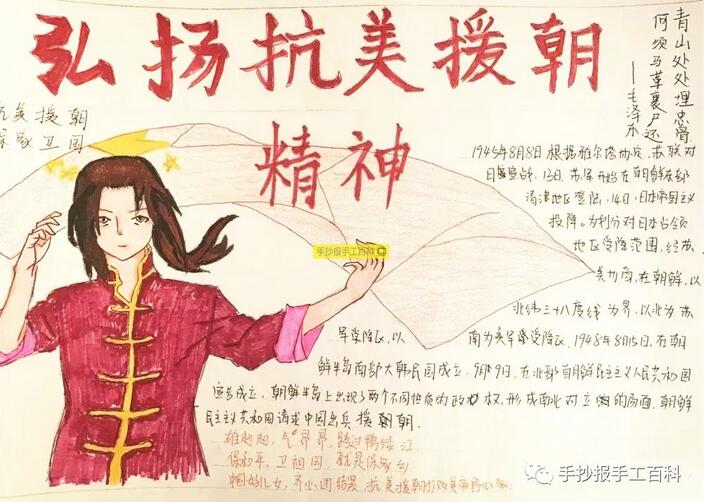 弘扬抗美援朝
精神
青山处处埋忠骨
何须马革裹尸还
——毛泽东
抗美援朝
保家卫国
1945年8月8日根据雅尔塔协定,苏联对
日宣战,13日,苏军开始在朝鲜东部
清津地区登陆,14日,日本帝国主义
投降。为划分对日本占领
地区受降范围,经苏
美协商,在朝鲜,以
北纬三十八度线为界,以北为苏
军受降区,以
南为美军受降区,1948年8月15日,在朝
鲜半岛南部大韩民国成立,9月9日,在北部朝鲜民主主义人民共和国
宣告成立,朝鲜半岛上出现了两个不同性质的政权,形成南北对立的局面.朝鲜
民主主义共和国请求中国出兵援朝.
雄赳赳,气昂昂,跨过鸭绿江
保和平,卫祖国,就是保家乡
中国好儿女,齐心团结紧,抗美援朝打败美帝野心狼
手抄报手工百科
手抄报手工百科